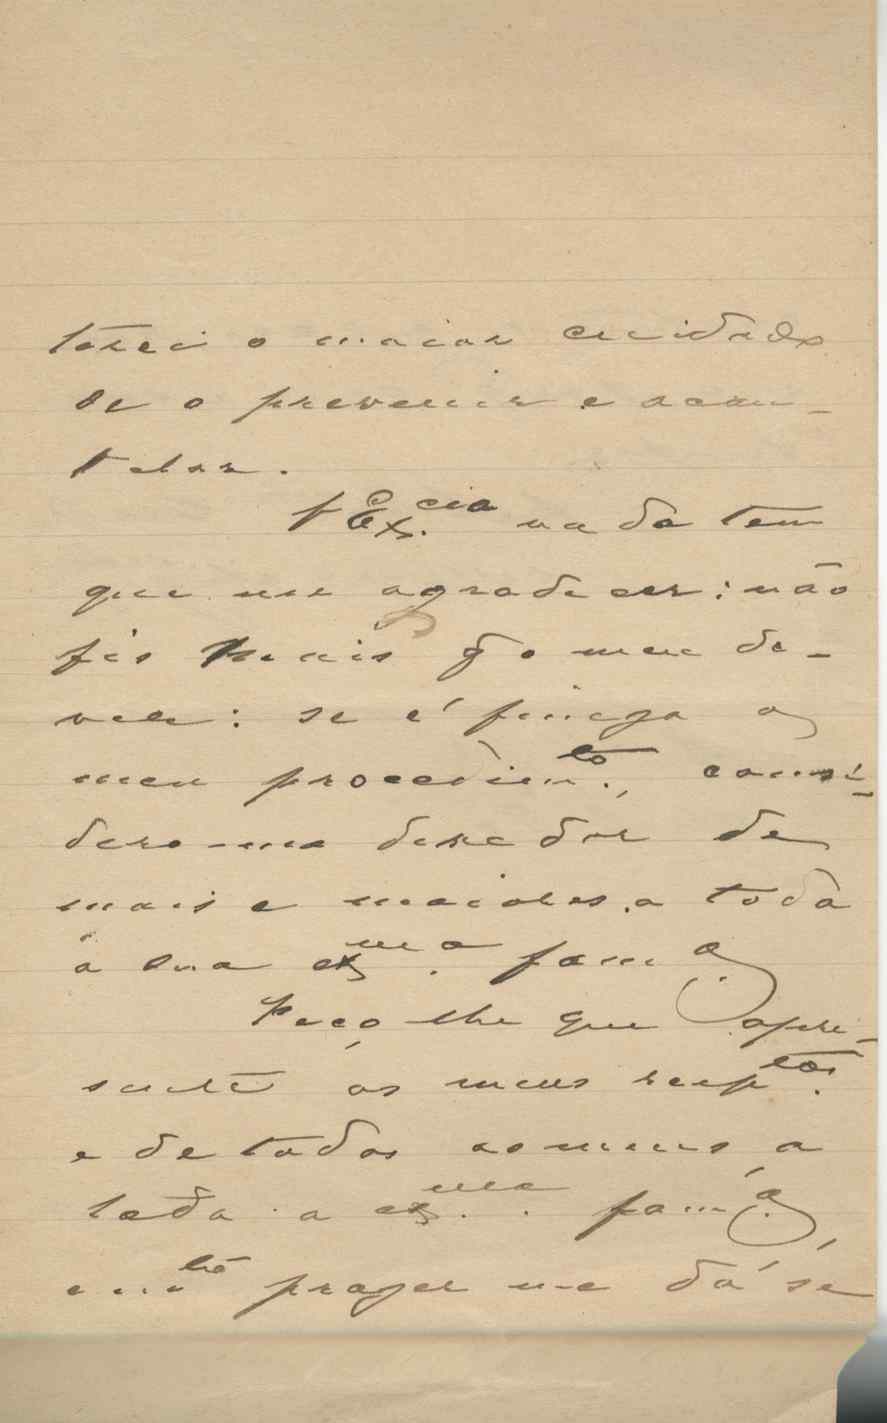 terei o maior cuidado
de o prevenir e acau-
telar.
V Ex.cia nada tem
que me agradecer: não
fis mais q̃ o meu de-
ver: se é fineza o
meu procedim.to, consi-
dero-me devedor de
mais e maiores a toda
a sua exma. fam.a
Peço lhe que apre-
sente os meus resp.tos
e de todos os meus a
toda a exma. fam.a,
e m.to prazer me dá se